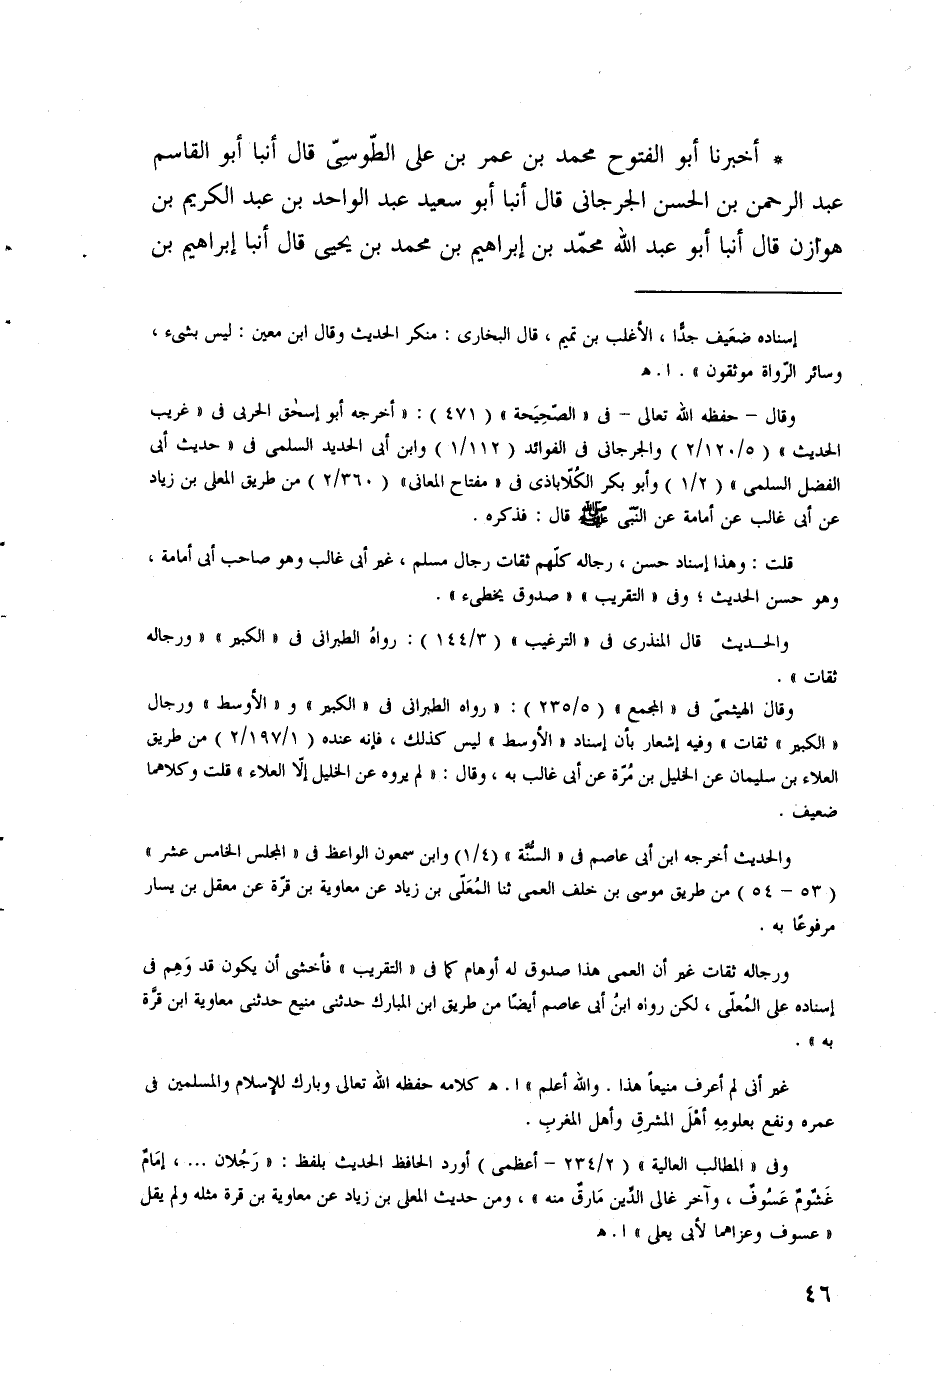 * أخبرنا أبو الفتوح محمد بن عمر بن على الطّوسىّ قال أنبا أبو القاسم
عبد الرحمن بن الحسن الجرجانى قال أنبا أبو سعيد عبد الواحد بن عبد الكريم بن
هوازن قال أنبا أبو عبد الله محمّد بن إبراهيم بن محمد بن يحيى قال أنبا إبراهيم بن
إسناده ضعَيف جدًّا ، الأغلب بن تميم ، قال البخارى : منكر الحديث وقال ابن معين : ليس بشىء ،
وسائر الرّواة موثقون » . ا.هـ
وقال – حفظه الله تعالى – فى « الصّحِيَحة » ( ٤٧١ ) : « أخرجه أبو إسحٰق الحربى فى « غريب
الحديث » ( ٢/١٢٠/٥ ) والجرجانى فى الفوائد ( ١/١١٢ ) وابن أبى الحديد السلمى فى « حديث أبى
الفضل السلمى » ( ١/٢ ) وأبو بكر الكُلّاباذى فى « مفتاح المعانى» ( ٢/٣٦٠ ) من طريق المعلى بن زياد
عن أبى غالب عن أمامة عن النّبّى ﷺ قال : فذكره .
قلت : وهذا إسناد حسن ، رجاله كلّهم ثقات رجال مسلم ، غير أبى غالب وهو صاحب أبى أمامة ،
وهو حسن الحديث ؛ وفى « التقريب » « صدوق يخطىء » .
والحـديث قال المنذرى فى « الترغيب » ( ١٤٤/٣ ) : رواهُ الطبرانى فى « الكبير » « ورجاله
ثقات » .
وقال الهيثمىّ فى « المجمع » ( ٢٣٥/٥ ) : « رواه الطبرانى فى « الكبير » و « الأوسط » ورجال
« الكبير » ثقات » وفيه إشعار بأن إسناد « الأوسط » ليس كذلك ، فإنه عنده ( ٢/١٩٧/١ ) من طريق
العلاء بن سليمان عن الخليل بن مُرّة عن أبى غالب به ، وقال : « لم يروه عن الخليل إلّا العلاء » قلت وكلاهما
ضعيف .
والحديث أخرجه ابن أبى عاصم فى « السُّنَّة » (١/٤) وابن سمعون الواعظ فى « المجلس الخامس عشر »
( ٥٣ – ٥٤ ) من طريق موسى بن خلف العمى ثنا المُعَلّى بن زياد عن معاوية بن قرّة عن معقل بن يسار
مرفوعًا به .
ورجاله ثقات غير أن العمى هذا صدوق له أوهام كما فى « التقريب » فأخشى أن يكون قد وَهِم فى
إسناده على المُعلّى ، لكن رواه ابنُ أبى عاصم أيضًا من طريق ابن المبارك حدثنى منيع حدثنى معاوية ابن قرَّة
به » .
غير أنى لم أعرف منيعاً هذا . والله أعلم » ا . هـ كلامه حفظه الله تعالى وبارك للإسلام والمسلمين فى
عمره ونفع بعلومِهِ أهْلَ المشرقِ وأهل المغربِ .
وفى « المطالب العالية » ( ٢٣٤/٢ – أعظمى ) أورد الحافظ الحديث بلفظ : « رَجُلان ... ، إمَامٌ
غَشُومٌ عَسُوفٌ ، وآخر غالى الدِّين مَارقٌ منه » ، ومن حديث المعلى بن زياد عن معاوية بن قرة مثله ولم يقل
« عسوف وعزاهما لأبى يعلى » ا.هـ
٤٦